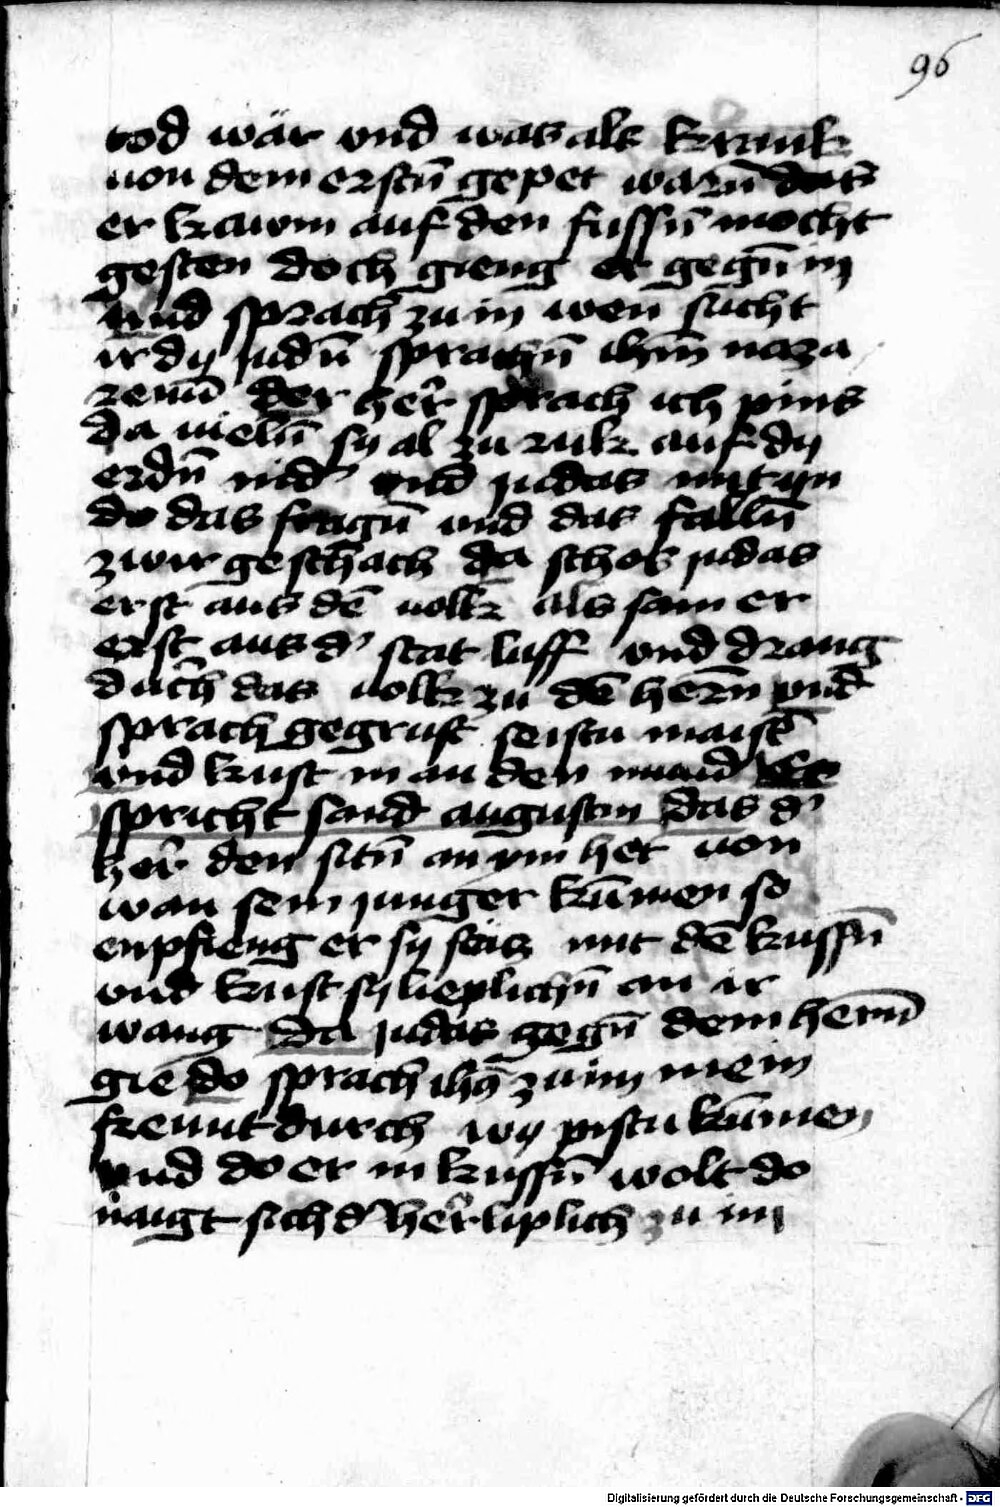 96
tod wär vnd was als krank
von dem erstn̄ gepet warn̄ das
er kawm auf den fussn̄ mocht
gesten doch gieng er gegn̄ in
vnd sprach zu in wen sucht
ir dy judn̄ sprachn̄ ihm̄ naza
renū der her̄ sprach ich pins
da vieln̄ sy al zu ruk auf dy
erdn̄ nid' vnd judas mit yn
do das fragn̄ vnd das falln̄
zwir geschach da schos judas
erst aus dē volk als sam er
erst aus d' stat luff vnd drang
durch das volk zu dē hern̄ vnd
sprach gegrust seistu maist'
vnd kust in an den mund Es
spricht sand augustin das d'
her̄ den sitn̄ an ym het von
wan sein junger kūmen so
enpfieng er sy mit dē kussn̄
vnd kust sy lieplichn̄ an ir
wang Da judas gegn̄ dem hernn̄
gie do sprach ihs̄ zu im mein
freunt durch wy pistu kūmen
vnd do er in kussn̄ wolt do
naigt sich d' her̄ liplich zu im
Digitalisierung gefördert durch die Deutsche Forschungsgemeinschaft - DFG